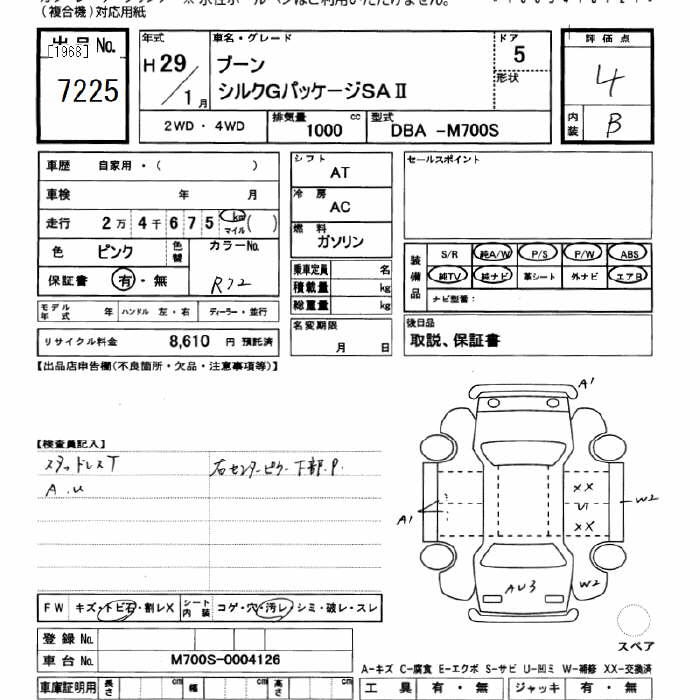 (複合機)対応用紙
出品No.
[1968]
7225
年式
H29/1月
車名・グレード
ブーン
シルクGパッケージSAⅡ
ドア
5
形状
評価点
4
内装
B
2WD・4WD
排気量
1000
cc
型式
DBA -M700S
車歴
自家用・( )
車検
年 月
走行
2万4千675
km
マイル
( )
色
ピンク
色替
カラーNo.
R72
保証書
有・無
モデル年式
年
ハンドル 左・右
ディーラー・並行
リサイクル料金
8,610 円 預託済
シフト
AT
冷房
AC
燃料
ガソリン
乗車定員 名
積載量 kg
総重量 kg
名変期限
月 日
セールスポイント
装備品
S/R 純A/W P/S P/W ABS
純TV 純ナビ 革シート 外ナビ エアB
ナビ型番:
後日品
取説、保証書
【出品店申告欄(不良箇所・欠品・注意事項等)】
【検査員記入】
スタッドレスT
A.U
右センターピラー下部P.
A1
A1
XX
U1
XX
W2
AU3
W2
スペア
FW キズ・トビ石・割レX
シート内装
コゲ・穴・汚レ・シミ・破レ・スレ
登録No.
車台No.
M700S-0004126
A-キズ C-腐食 E-エクボ S-サビ U-凹ミ W-補修 XX-交換済
車庫証明用
長さ cm
幅 cm
高さ cm
工具 有・無
ジャッキ 有・無